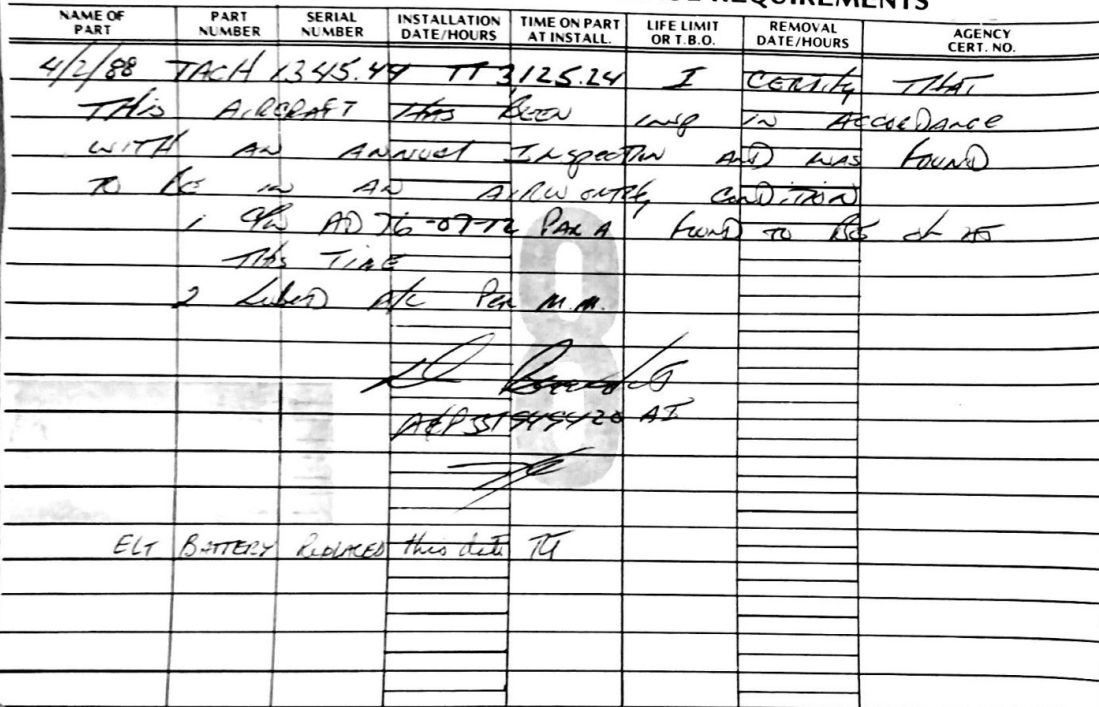 REQUIREMENTS
NAME OF PART PART NUMBER SERIAL NUMBER INSTALLATION DATE/HOURS TIME ON PART AT INSTALL. LIFE LIMIT OR T.B.O. REMOVAL DATE/HOURS AGENCY CERT. NO.
4/2/88 TACH 1345.44 TT 3125.24 I CERTIFY THAT
THIS AIRCRAFT HAS BEEN INSP IN ACCORDANCE
WITH AN ANNUAL INSPECTION AND WAS FOUND
TO BE IN AN AIRWORTHY CONDITION
1 C/W AD 76-07-12 PAR A FOUND TO BE OK AT
THIS TIME
2 LUBED A/C PER M.M.
A&P 519494420 AI
ELT BATTERY REPLACED this date